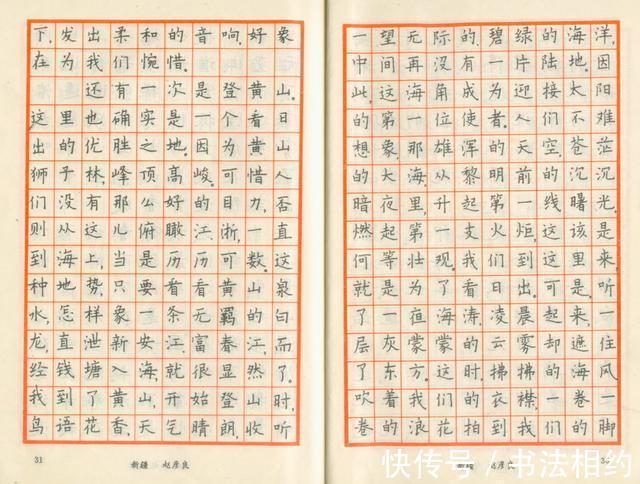 一望无际的.碧绿的海洋,
中间再没有一片陆地.因
此,这海角成为迎接太阳
的第一位使者.人们不难
想象,那雄浑的天空,苍茫
的大海,从黎明前的沉沉
暗夜里,升起第一线曙光,
燃起第一支火炬,这该是
何等壮观.我们到这里来,
就是为了看日出.可是,听
了一夜海涛.凌晨起来,一
层灰蒙蒙的云雾却遮住
了东方.这时,拂拂的海风
吹着我们的衣襟.一卷一
卷的浪花拍到我们的脚
新疆 赵彦良
下,发出柔和的音响,好象
在为我们惋惜.
还有一次是登黄山.
这里也确实是一个看日
出的优胜之地.因为黄山
狮子林,峰顶高峻.可惜人
们没有那么好的目力,否
则从这儿俯瞰江、浙,一直
到海上,当是历历可数.这
种地势,只要看看黄山泉
水,怎样象一条无羁的白
龙,直泄新安江、富春江而
经钱塘入海,就很显然了.
我到了黄山,开始登山时,
鸟语花香,天气晴朗,收听
31 新疆 赵彦良
快传号/书法相约